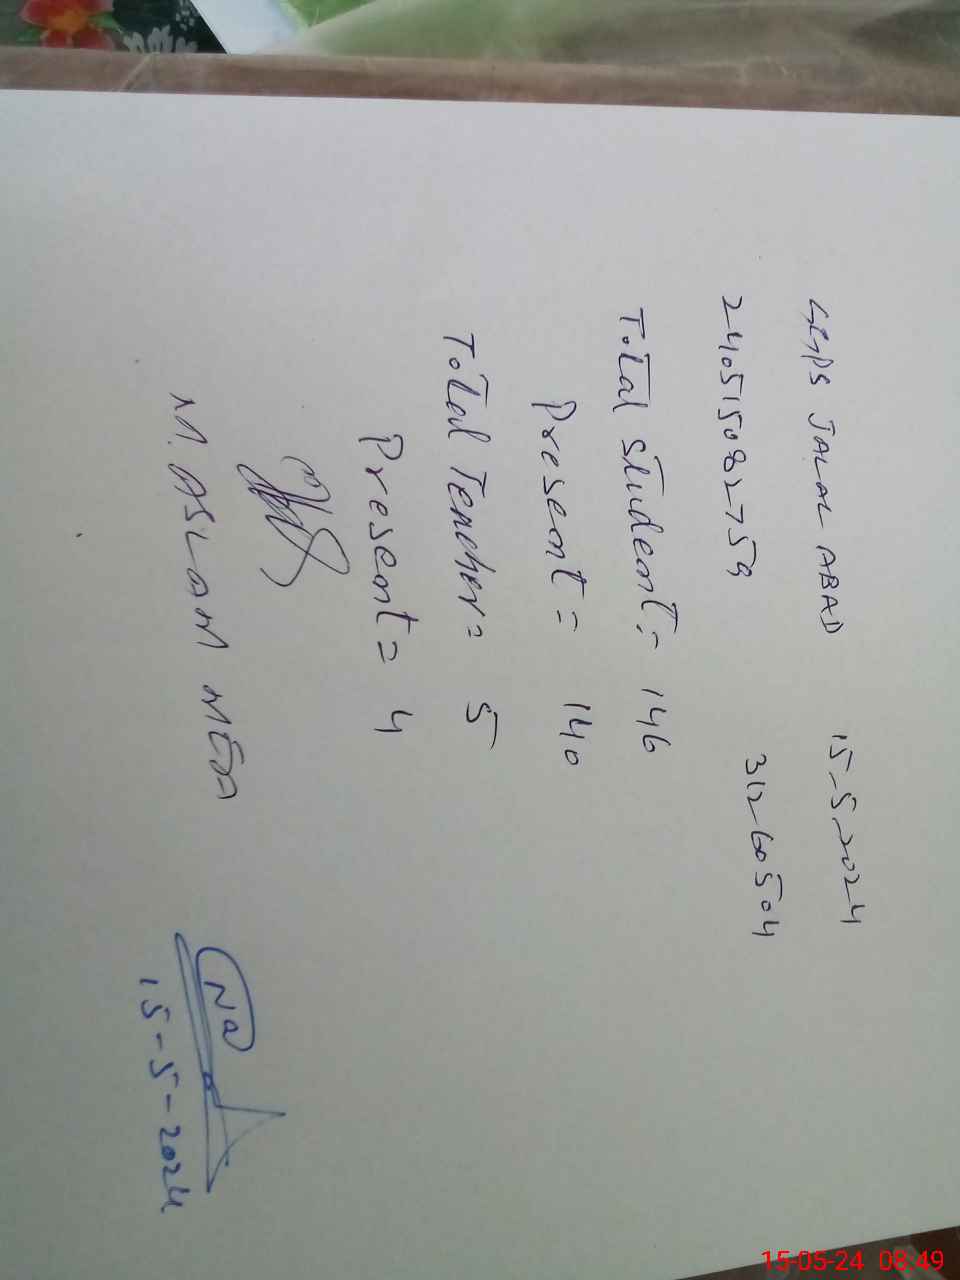 GGPS JALAL ABAD 15-5-2024
240515082759 312-60504
Total Student = 146
Present = 140
Total Teacher = 5
Present = 4
M. ASLAM MEA
Na
15-5-2024
15-05-24 08:49